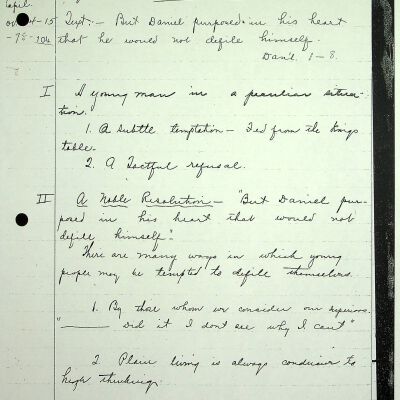 April
Text:- But Daniel purposed in his heart
that he would not defile himself.
Dan'l. 1-8.
I A young man in a peculiar situa-
tion.
1. A subtle temptation - Fed from the kings
table.
2. A Tactful refusal.
II A Noble Resolution - "But Daniel pur-
posed in his heart that would not
defile himself".
There are many ways in which young
people may be tempted to defile themselves.
1. By those whom we consider our superiors.
"____ did it I don't see why I can't"
2 Plain living is always conducive to
high thinking.